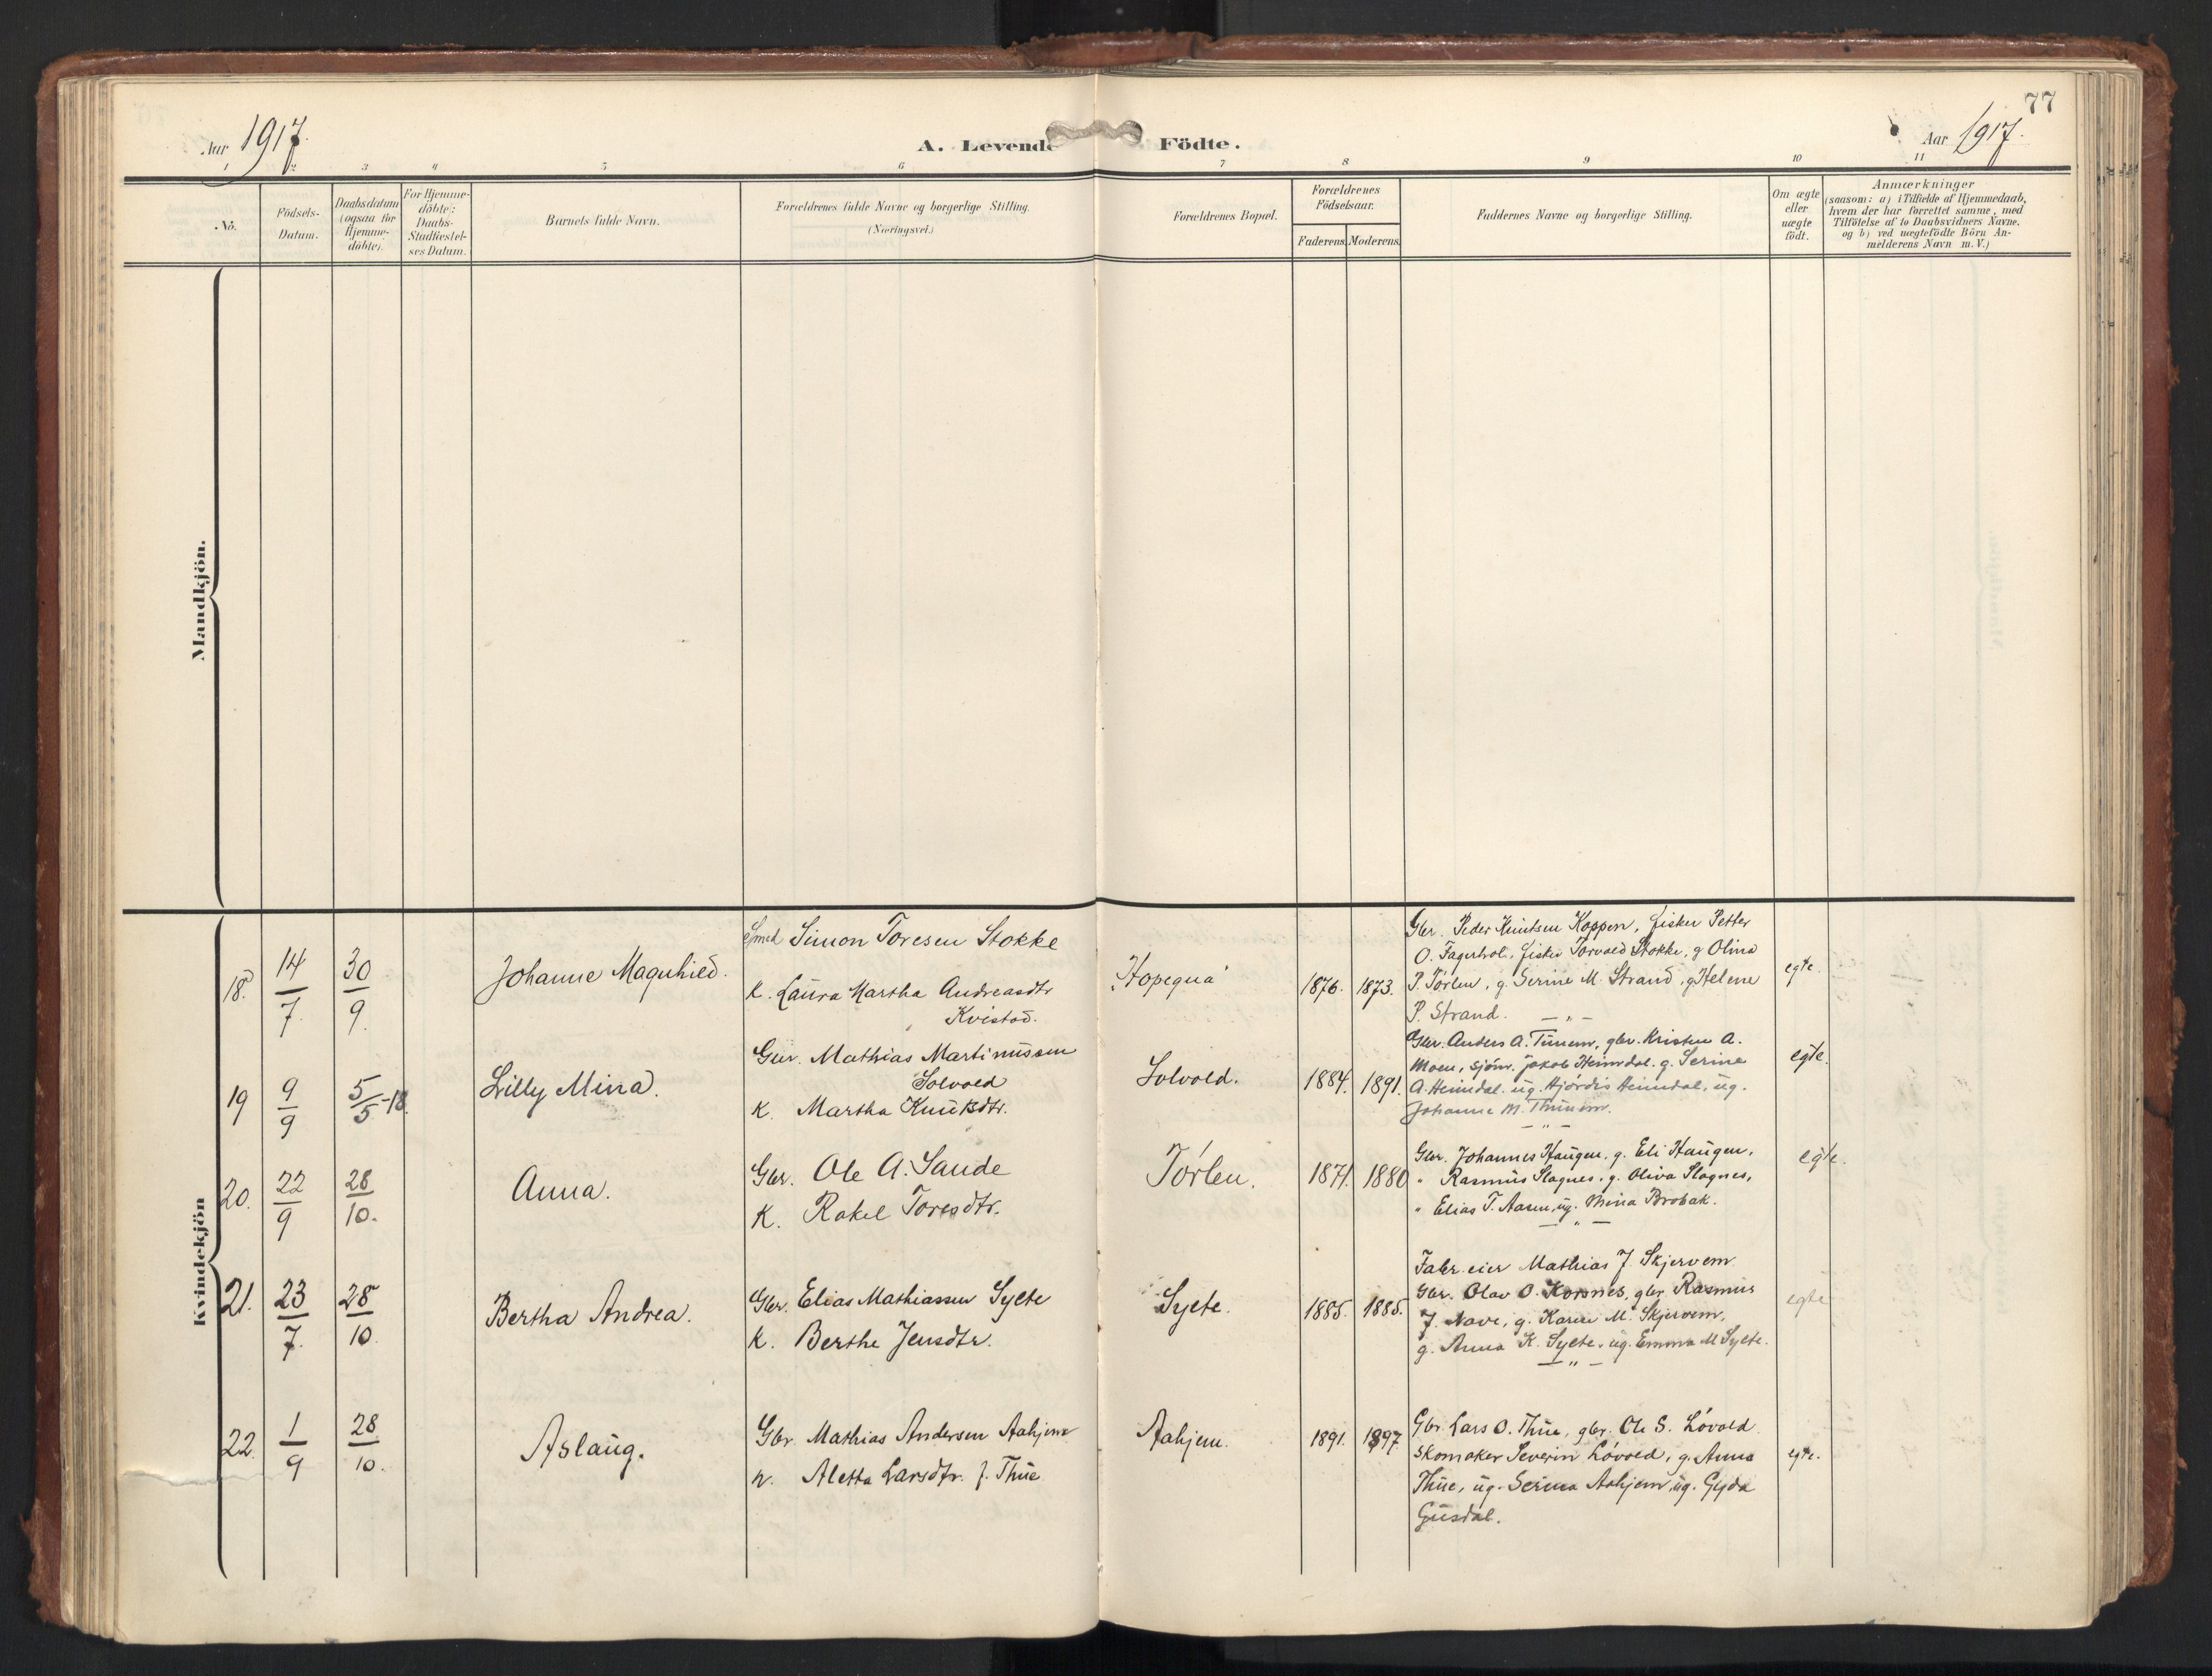 77
Aar 1917.
A. Levende Födte.
Aar 1917.
1 2 3 4 5 6 7 8 9 10 11
No.
Födsels-
Datum.
Daabsdatum
(ogsaa for
Hjemme-
döbte).
For Hjemme-
döbte:
Daabs-
Stadfæstel-
ses Datum.
Barnets fulde Navn.
Forældrenes fulde Navne og borgerlige Stilling.
(Næringsvei.)
Forældrenes Bopæl.
Forældrenes
Födselsaar.
Faderens. Moderens.
Faddernes Navne og borgerlige Stilling.
Om ægte
eller
uægte
födt.
Anmærkninger
(saasom: a) i Tilfælde af Hjemmedaab,
hvem der har forrettet samme, med
Tilföielse af to Daabsvidners Navne,
og b) ved uægtefödte Börn An-
melderens Navn m. V.)
Mandkjön.
Kvindekjön
18.
14
7.
30
9.
Johanne Magnhild.
Smed Simon Toresen Stokke
K. Laura Martha Andreasdtr
Kvistad.
1876. 1873.
Gbr. Peder Knutsen Koppen, fisker Petter
O. Fagerhol, fisker Torvald Stokke, g Olina
P. Tørlen, g. Serine M. Strand, g Helene
P. Strand. — " —
egte.
19
9
9
5
5 -18.
Lilly Mina.
Gbr. Mathias Martinussen
Solvold
K. Martha Knutsdtr.
Solvold.
1884. 1891.
Gbr. Anders A. Tunem, gbr. Kristen A.
Moen, sjöm. Jakob Heimdal. g. Serine
A. Heimdal. ug. Hjördis Heimdal, ug.
Johanne M. Thunem.
— " —
egte.
20.
22
9
28
10.
Anna.
Gbr. Ole A. Sande
K. Rakel Toresdtr.
Tørlen.
1871. 1880
Gbr. Johannes Haugen, g. Eli Haugen,
" Rasmus Slagnes, g. Oliva Slagnes,
" Elias T. Aasen, ug. Mina Brobak.
— " —
egte.
21.
23
7.
28
10.
Bertha Andrea.
Gbr. Elias Mathiassen Sylte
K. Berthe Jensdtr.
Sylte.
1885. 1885.
Fabr. eier Mathias J. Skjervem
Gbr. Olav O. Korsnes, gbr. Rasmus
J. Nave, g. Karen M. Skjervem,
g. Anna K. Sylte, ug. Emma M Sylte.
— " —
egte
22.
1
9
28
10.
Aslaug.
Gbr. Mathias Andersen Aahjem
K. Aletta Larsdtr. f. Thue
Aahjem.
1891. 1897.
Gbr. Lars O. Thue, gbr. Ole S. Løvold
Skomaker Severin Løvold, g. Anna
Thue, ug. Serina Aahjem, ug. Gyda
Gusdal.
egte.